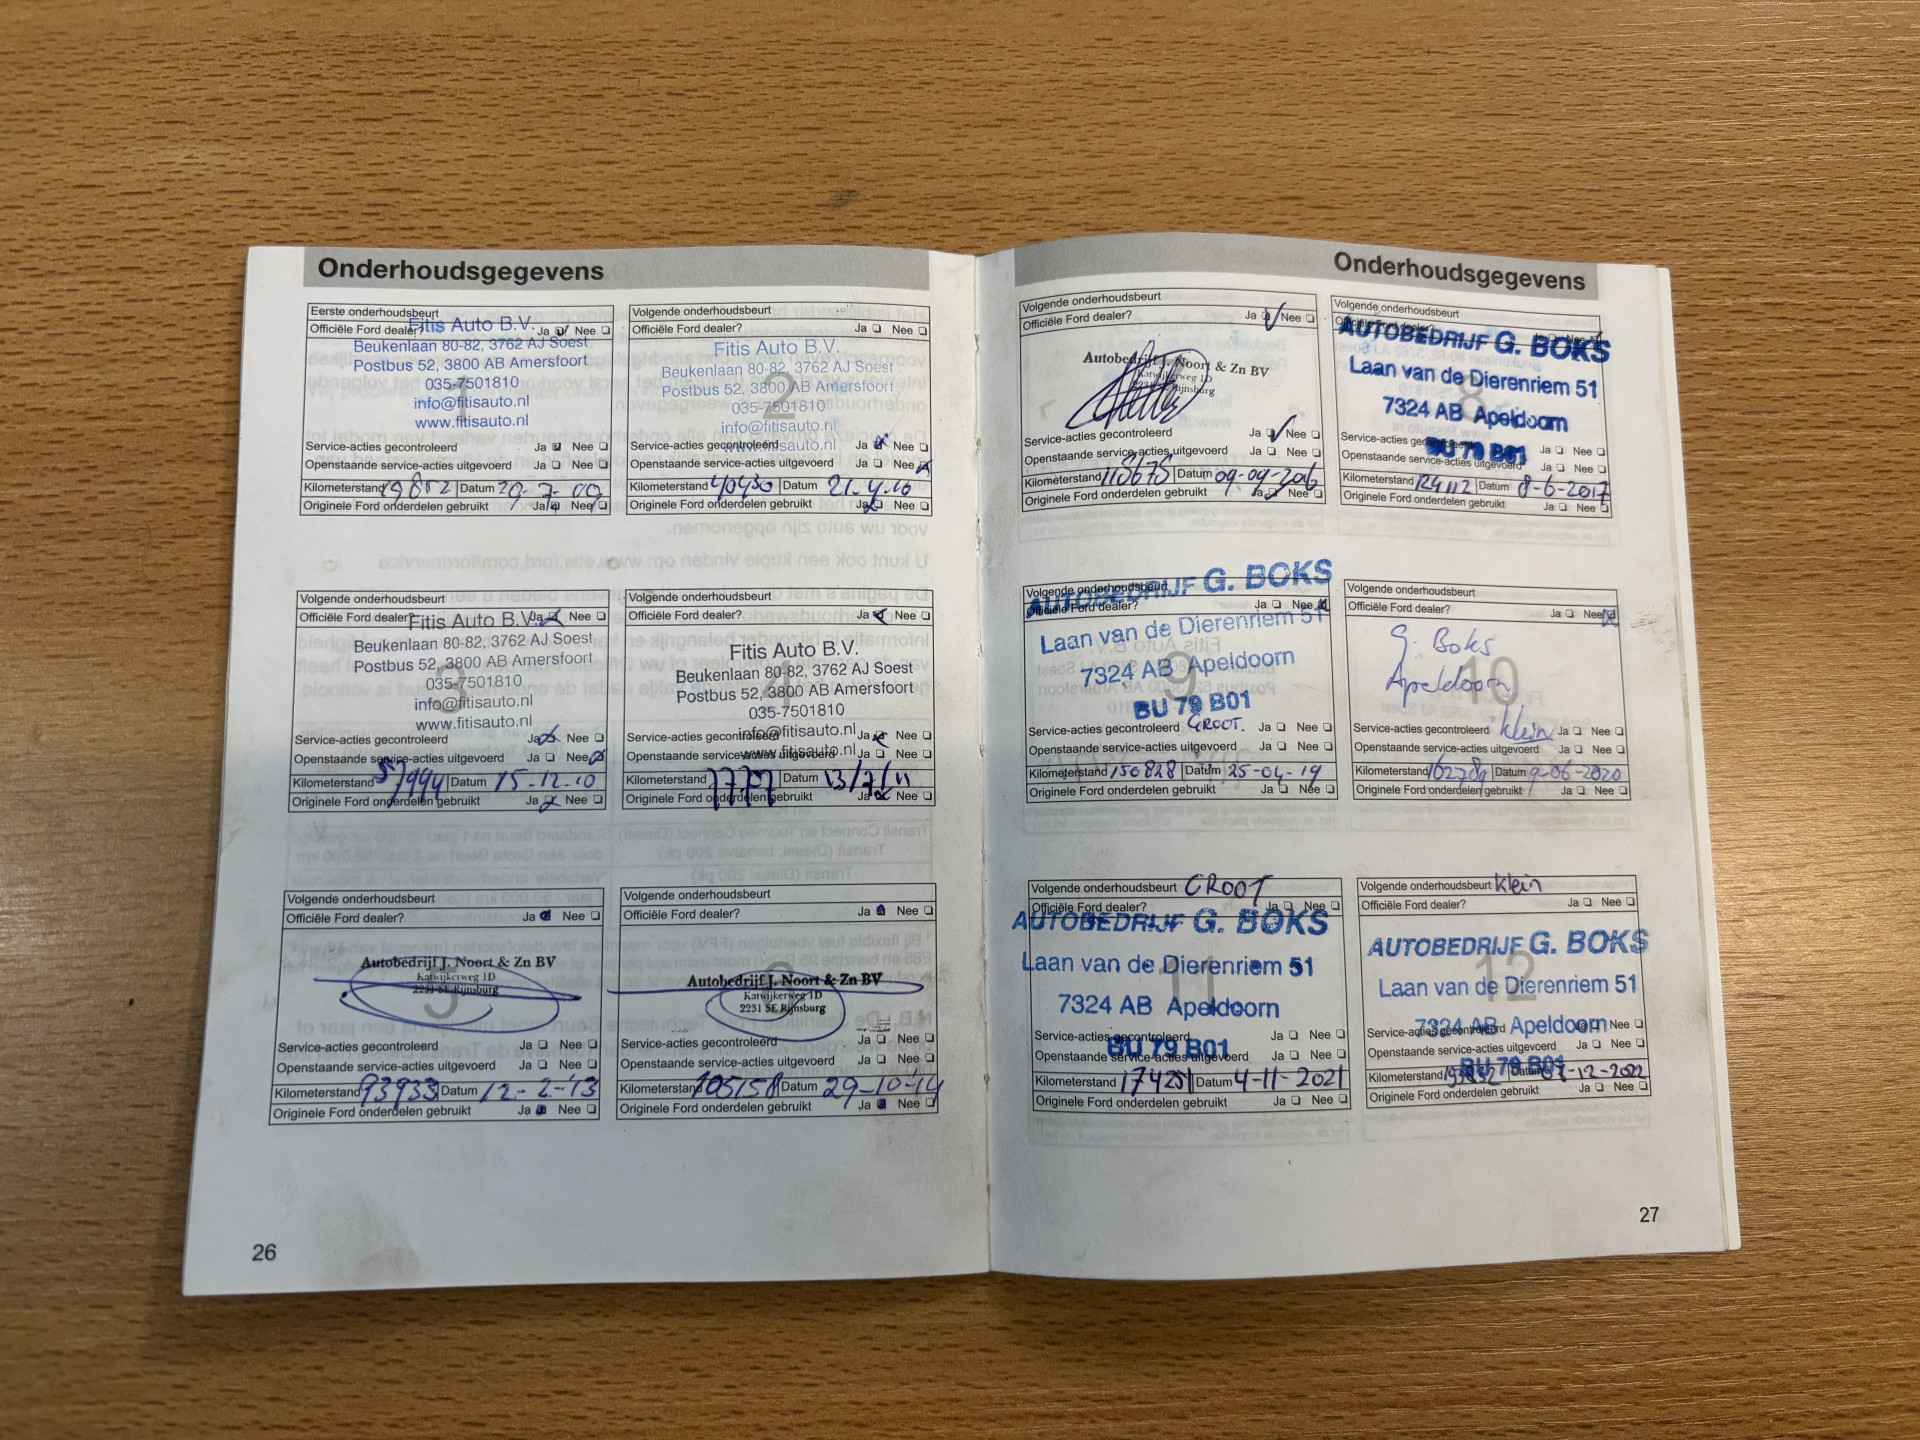 Onderhoudsgegevens
Eerste onderhoudsbeurt
Officiële Ford dealer? Ja Nee
Fitis Auto B.V.
Beukenlaan 80-82, 3762 AJ Soest
Postbus 52, 3800 AB Amersfoort
035-7501810
info@fitisauto.nl
www.fitisauto.nl
1
Service-acties gecontroleerd Ja Nee
Openstaande service-acties uitgevoerd Ja Nee
Kilometerstand 19852 Datum 29-7-09
Originele Ford onderdelen gebruikt Ja Nee
Volgende onderhoudsbeurt
Officiële Ford dealer? Ja Nee
Fitis Auto B.V.
Beukenlaan 80-82, 3762 AJ Soest
Postbus 52, 3800 AB Amersfoort
035-7501810
info@fitisauto.nl
www.fitisauto.nl
2
Service-acties gecontroleerd Ja Nee
Openstaande service-acties uitgevoerd Ja Nee
Kilometerstand 40430 Datum 21-4-10
Originele Ford onderdelen gebruikt Ja Nee
Volgende onderhoudsbeurt
Officiële Ford dealer? Ja Nee
Fitis Auto B.V.
Beukenlaan 80-82, 3762 AJ Soest
Postbus 52, 3800 AB Amersfoort
035-7501810
info@fitisauto.nl
www.fitisauto.nl
3
Service-acties gecontroleerd Ja Nee
Openstaande service-acties uitgevoerd Ja Nee
Kilometerstand 57994 Datum 15-12-10
Originele Ford onderdelen gebruikt Ja Nee
Volgende onderhoudsbeurt
Officiële Ford dealer? Ja Nee
Fitis Auto B.V.
Beukenlaan 80-82, 3762 AJ Soest
Postbus 52, 3800 AB Amersfoort
035-7501810
info@fitisauto.nl
www.fitisauto.nl
4
Service-acties gecontroleerd Ja Nee
Openstaande service-acties uitgevoerd Ja Nee
Kilometerstand Datum 13/7/11
Originele Ford onderdelen gebruikt Ja Nee
Volgende onderhoudsbeurt
Officiële Ford dealer? Ja Nee
Autobedrijf J. Noort & Zn BV
Katwijkerweg 1D
2231 SE Rijnsburg
5
Service-acties gecontroleerd Ja Nee
Openstaande service-acties uitgevoerd Ja Nee
Kilometerstand 93933 Datum 12-2-'13
Originele Ford onderdelen gebruikt Ja Nee
Volgende onderhoudsbeurt
Officiële Ford dealer? Ja Nee
Autobedrijf J. Noort & Zn BV
Katwijkerweg 1D
2231 SE Rijnsburg
Service-acties gecontroleerd Ja Nee
Openstaande service-acties uitgevoerd Ja Nee
Kilometerstand 105158 Datum 29-10-'14
Originele Ford onderdelen gebruikt Ja Nee
26
Onderhoudsgegevens
Volgende onderhoudsbeurt
Officiële Ford dealer? Ja Nee
Autobedrijf J. Noort & Zn BV
Katwijkerweg 1D
Rijnsburg
Service-acties gecontroleerd Ja Nee
Openstaande service-acties uitgevoerd Ja Nee
Kilometerstand 118675 Datum 09-09-2016
Originele Ford onderdelen gebruikt Ja Nee
Volgende onderhoudsbeurt
AUTOBEDRIJF G. BOKS
Laan van de Dierenriem 51
7324 AB Apeldoorn
BU 79 B01
8
Service-acties gecontroleerd Ja Nee
Openstaande service-acties uitgevoerd Ja Nee
Kilometerstand 124112 Datum 8-6-2017
Originele Ford onderdelen gebruikt Ja Nee
Volgende onderhoudsbeurt
Officiële Ford dealer? Ja Nee
AUTOBEDRIJF G. BOKS
Laan van de Dierenriem 51
7324 AB Apeldoorn
BU 79 B01
9
Service-acties gecontroleerd GROOT. Ja Nee
Openstaande service-acties uitgevoerd Ja Nee
Kilometerstand 150828 Datum 25-04-19
Originele Ford onderdelen gebruikt Ja Nee
Volgende onderhoudsbeurt
Officiële Ford dealer? Ja Nee
G. Boks
Apeldoorn
10
Service-acties gecontroleerd klein Ja Nee
Openstaande service-acties uitgevoerd Ja Nee
Kilometerstand Datum 9-06-2020
Originele Ford onderdelen gebruikt Ja Nee
Volgende onderhoudsbeurt GROOT
Officiële Ford dealer? Ja Nee
AUTOBEDRIJF G. BOKS
Laan van de Dierenriem 51
7324 AB Apeldoorn
BU 79 B01
11
Service-acties gecontroleerd Ja Nee
Openstaande service-acties uitgevoerd Ja Nee
Kilometerstand 174251 Datum 4-11-2021
Originele Ford onderdelen gebruikt Ja Nee
Volgende onderhoudsbeurt klein
Officiële Ford dealer? Ja Nee
AUTOBEDRIJF G. BOKS
Laan van de Dierenriem 51
7324 AB Apeldoorn
BU 79 B01
12
Service-acties gecontroleerd Ja Nee
Openstaande service-acties uitgevoerd Ja Nee
Kilometerstand Datum 07-12-2022
Originele Ford onderdelen gebruikt Ja Nee
27